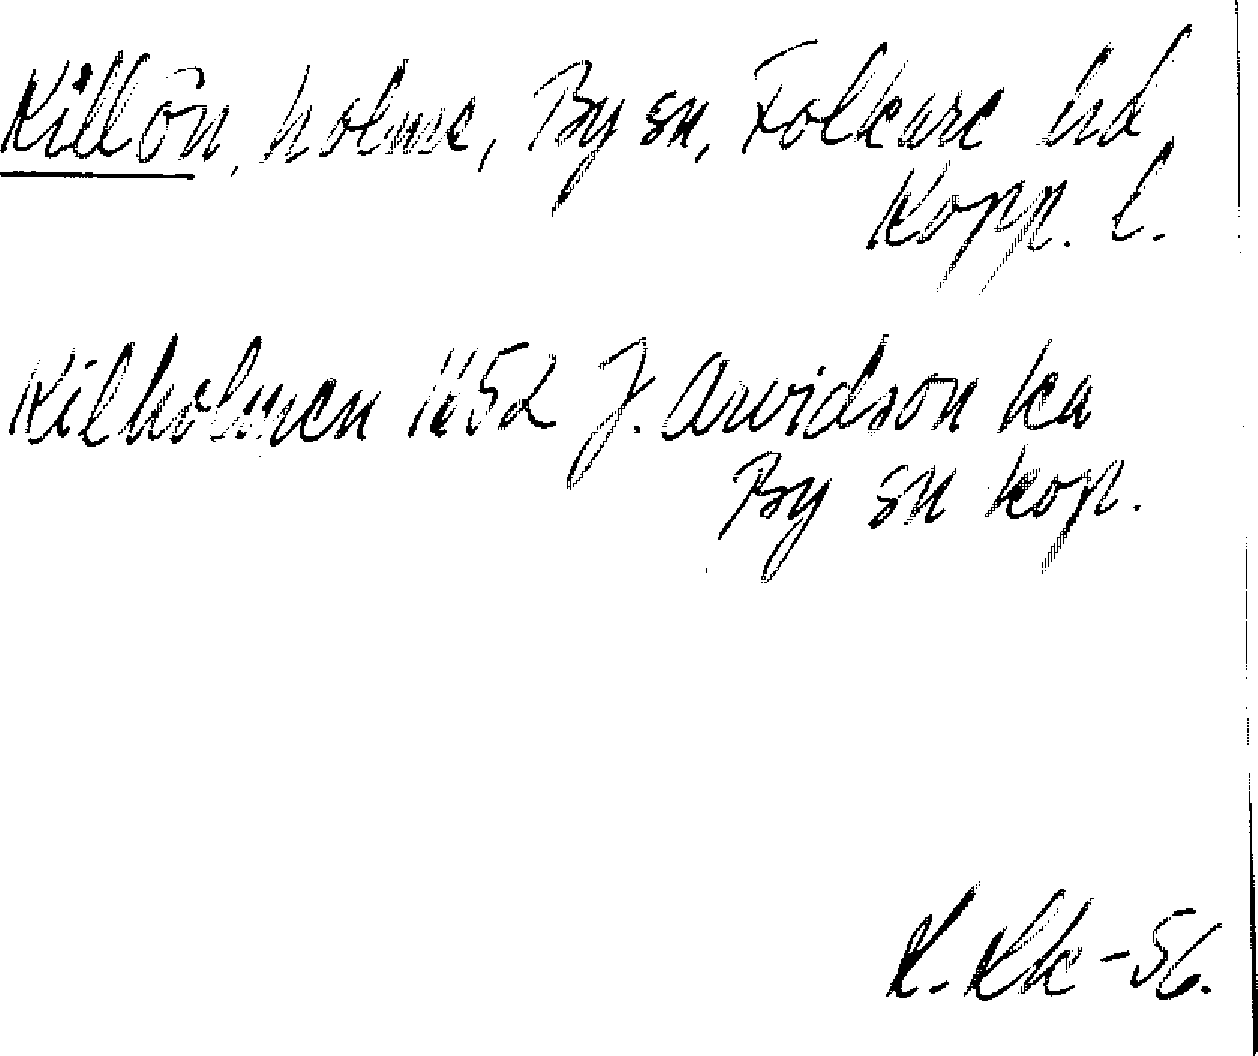 Killön, holme, By sn, Folkare hd,
Kopp. l.
Kilholmen 1652 J. Arvidson ka
By sn kop.
K. Kk -56.